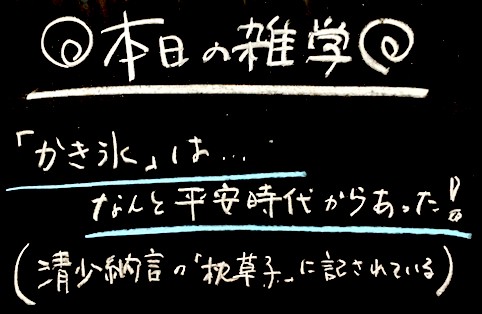 本日の雑学
「かき氷」は…
なんと平安時代からあった!
(清少納言の「枕草子」に記されている)